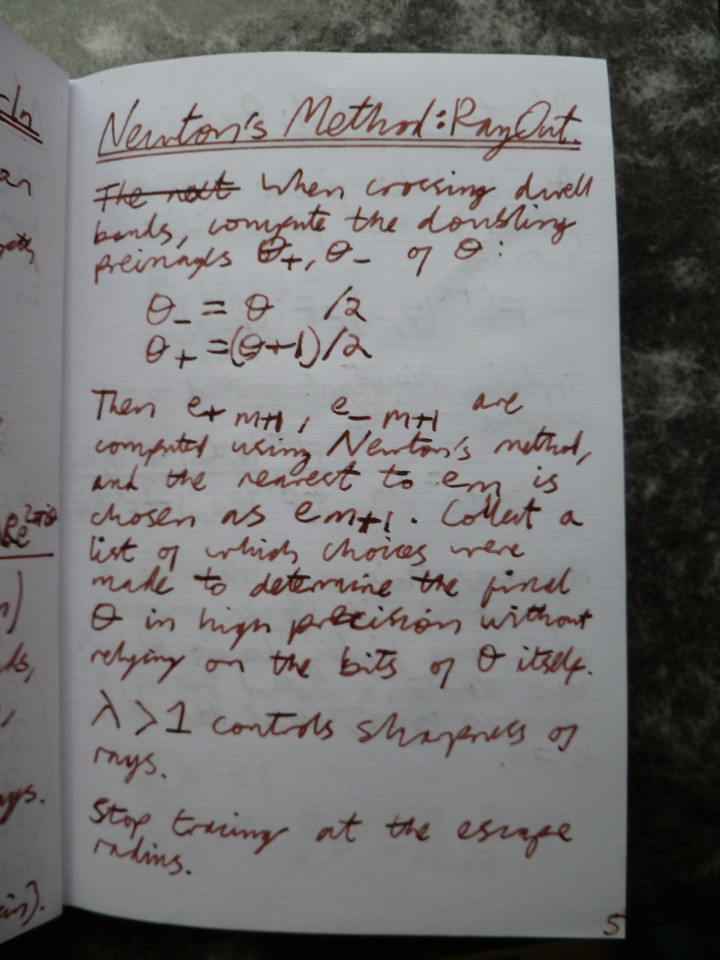 Newton's Method: Ray Out.
The next When crossing dwell
bands, compute the doubling
preimages θ+, θ- of θ:
θ- = θ /2
θ+ = (θ+1)/2
Then e+ m+1, e- m+1 are
computed using Newton's method,
and the nearest to em is
chosen as em+1. Collect a
list of which choices were
made to determine the final
θ in high precision without
relying on the bits of θ itself.
λ > 1 controls sharpness of
rays.
Stop tracing at the escape
radius.
5